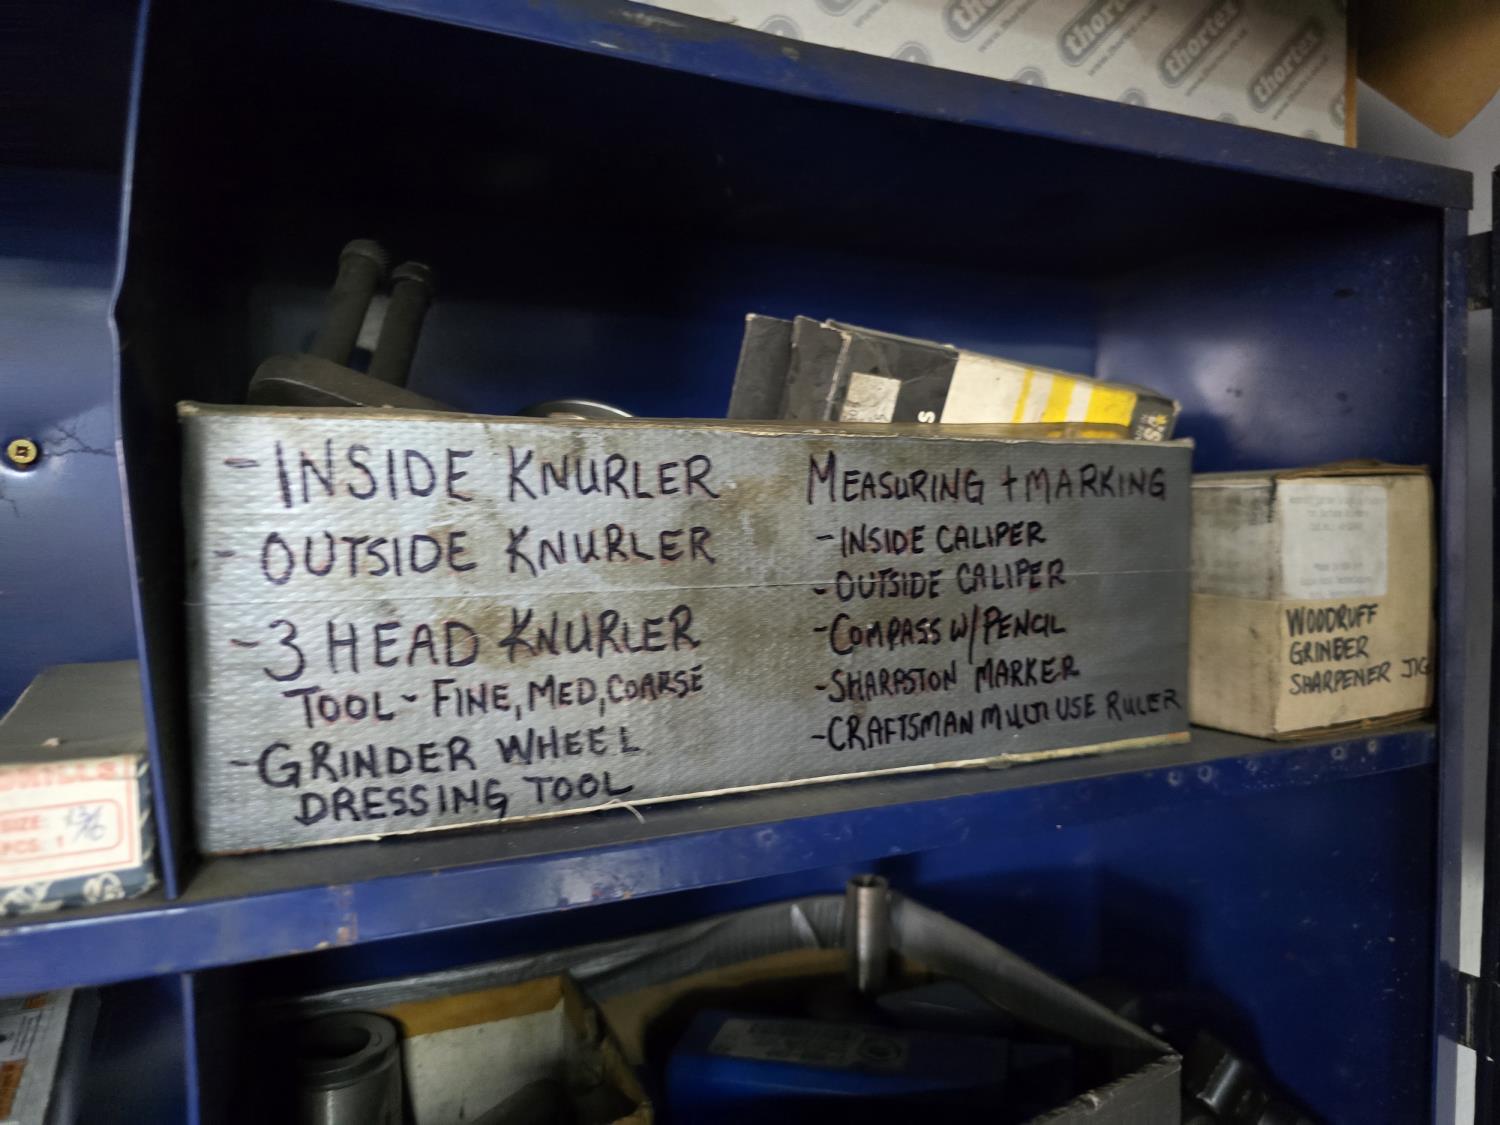 thortex
thortex
thortex
- INSIDE KNURLER
- OUTSIDE KNURLER
- 3 HEAD KNURLER
TOOL - FINE, MED, COARSE
- GRINDER WHEEL
DRESSING TOOL
MEASURING + MARKING
- INSIDE CALIPER
- OUTSIDE CALIPER
- COMPASS W/ PENCIL
- SHARPSTON MARKER
- CRAFTSMAN MULTI USE RULER
WOODRUFF
GRINDER
SHARPENER JIG
SIZE:
PCS: 1